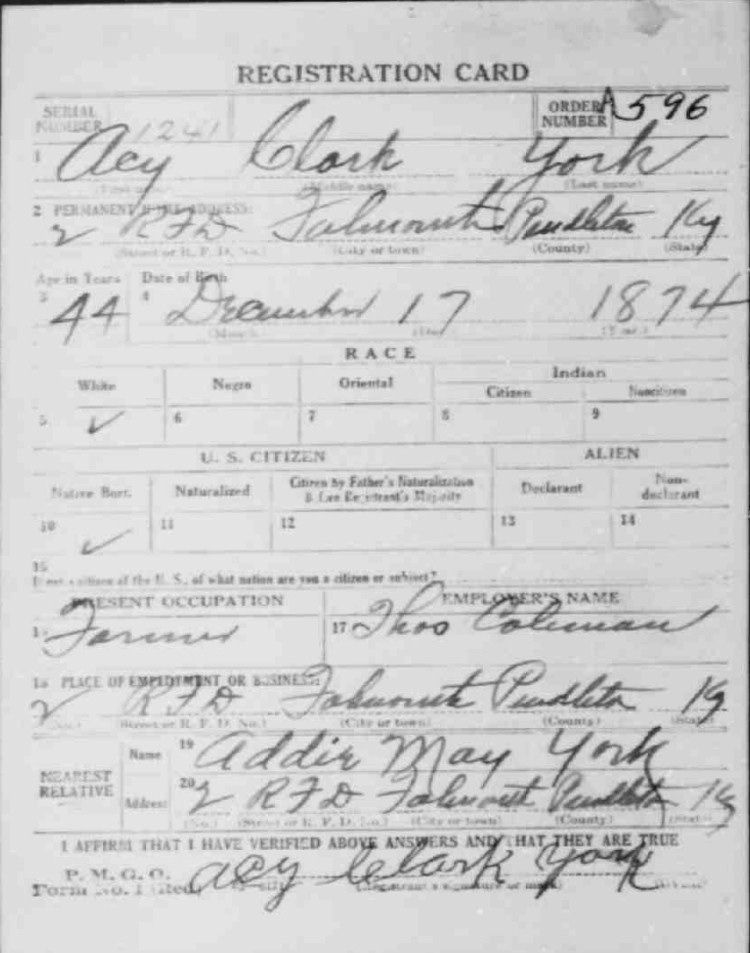 REGISTRATION CARD
SERIAL NUMBER 1241 ORDER NUMBER A596
1 Acy Clark York
(First name) (Middle name) (Last name)
2 PERMANENT HOME ADDRESS:
2 RFD Falmouth Pendleton Ky
(Street or R. F. D. No.) (City or town) (County) (State)
Age in Years Date of Birth
3 44 4 December 17 1874
(Month) (Day) (Year)
RACE
White Negro Oriental Indian
Citizen Noncitizen
5 ✓ 6 7 8 9
U. S. CITIZEN ALIEN
Native Born Naturalized Citizen by Father's Naturalization Before Registrant's Majority Declarant Non-declarant
10 ✓ 11 12 13 14
15
If not a citizen of the U. S., of what nation are you a citizen or subject?
PRESENT OCCUPATION EMPLOYER'S NAME
16 Farmer 17 Thos Coleman
18 PLACE OF EMPLOYMENT OR BUSINESS:
2 RFD Falmouth Pendleton Ky
(No.) (Street or R. F. D. No.) (City or town) (County) (State)
NEAREST RELATIVE Name 19 Addie May York
Address 20 2 RFD Falmouth Pendleton Ky
(No.) (Street or R. F. D. No.) (City or town) (County) (State)
I AFFIRM THAT I HAVE VERIFIED ABOVE ANSWERS AND THAT THEY ARE TRUE
P. M. G. O.
Form No. 1 (Red) Acy Clark York
(Registrant's signature or mark)